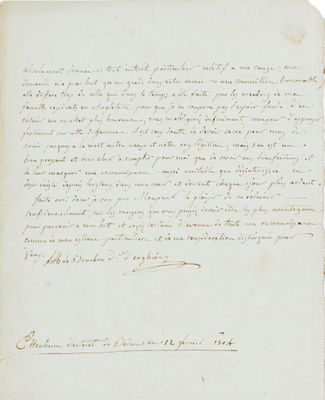 absolument dénuée de tout intérêt particulier relatif à ma cause. ma
demande n'a pour but qu'un grade dans votre armée ou une commission honorable,
elle diffère trop de celle qui dans le temps a été faite par les membres de ma
famille résidents en Angleterre, pour que je ne conserve pas l'espoir fondé d'en
obtenir un résultat plus heureux, vous m'obligerez infiniment monsieur d'appuyer
fortement sur cette différence. il est sans doute de devoir sacré pour nous de
servir jusqu'à la mort notre cause et notre roy légitime; mais c'en est un
bien pressant et bien cher à remplir pour moi que de servir mes bienfaiteurs et
de leur marquer ma reconnaissance aussi véritable que désintéressée. ce
désir existe depuis longtems dans mon cœur et devient chaque jour plus ardent.
faites moi donc je vous prie Monsieur le plaisir de m'éclairer
confidentiellement, sur les moyens que vous jugez devoir être les plus avantageux
pour parvenir à mon but et soyez certain d'avance de toute ma reconnaissance
comme de mon estime particulière et de ma considération distinguée pour
vous.
de Bourbon D. d'enghien
Ettenheim électorat de Baden ce 12 février 1804